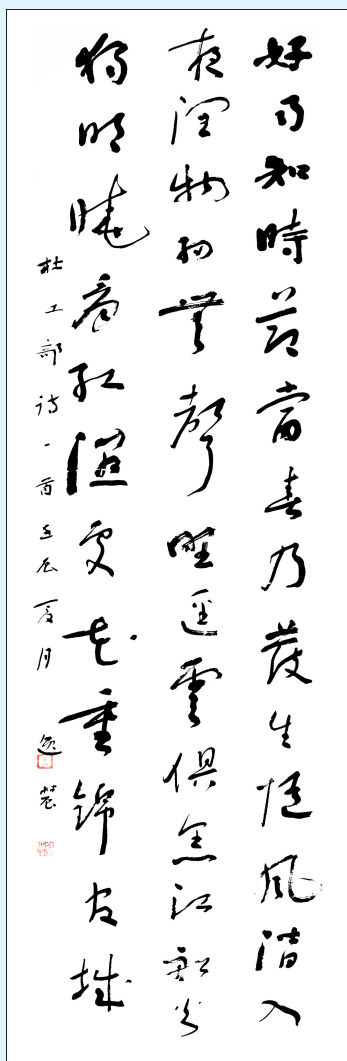 好雨知時節當春乃發生隨風潛入
夜潤物細無聲野逕雲俱黑江船火
獨明曉看紅濕處花重錦官城
杜工部诗一首壬辰夏月